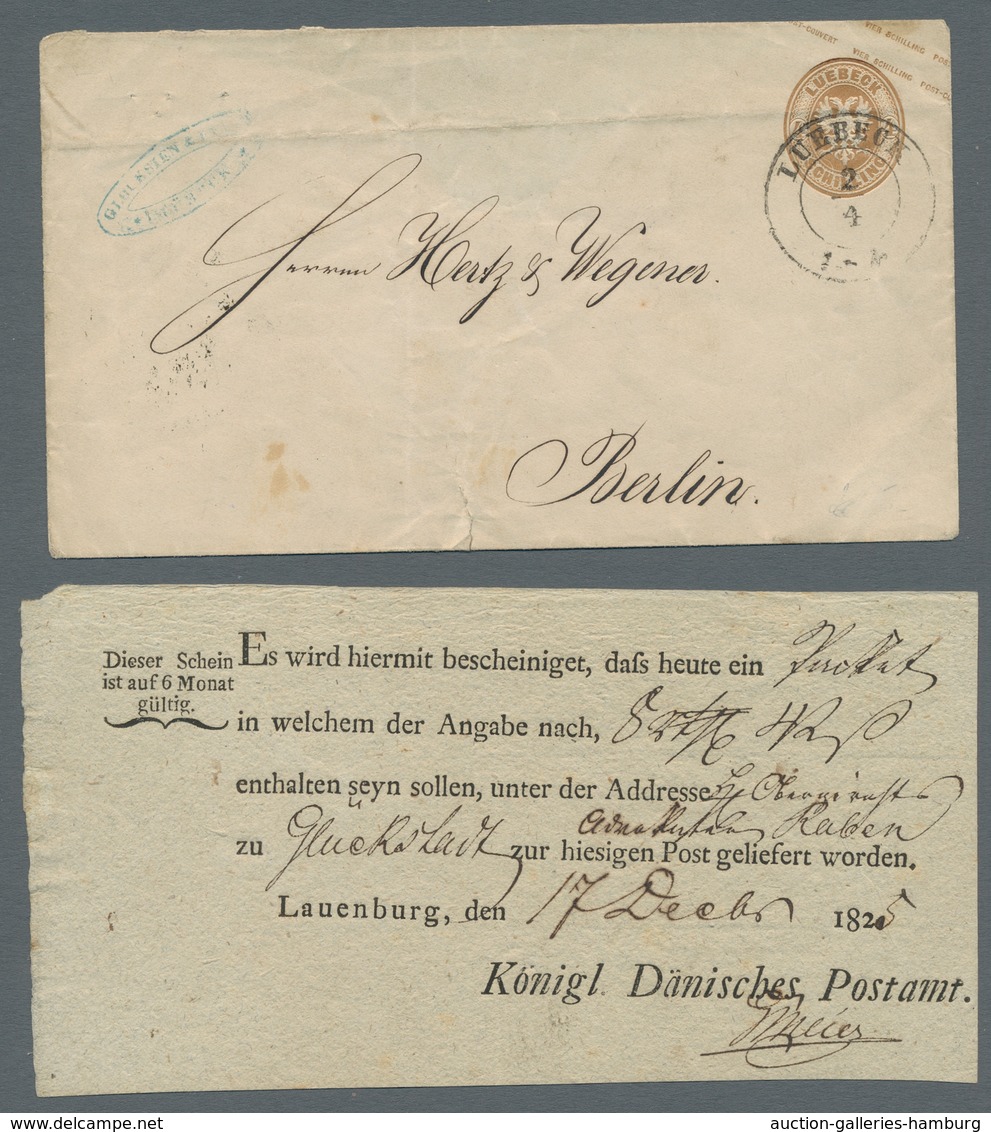 POST-COUVERT VIER SCHILLING POST
VIER SCHILLING POST-CO
LUEBECK
SCHILLING
LUEBECK
2
4
Herren Hertz & Wegener.
Berlin.
Dieser Schein
ist auf 6 Monat
gültig.
Es wird hiermit bescheiniget, daſs heute ein Packet
in welchem der Angabe nach,
enthalten seyn sollen, unter der Addresse Obergerichts
Advokaten Raben
zu Glückstadt zur hiesigen Post geliefert worden.
Lauenburg, den 17 Decbr 1825
Königl. Dänisches Postamt.
Meier
auction-galleries-hamburg